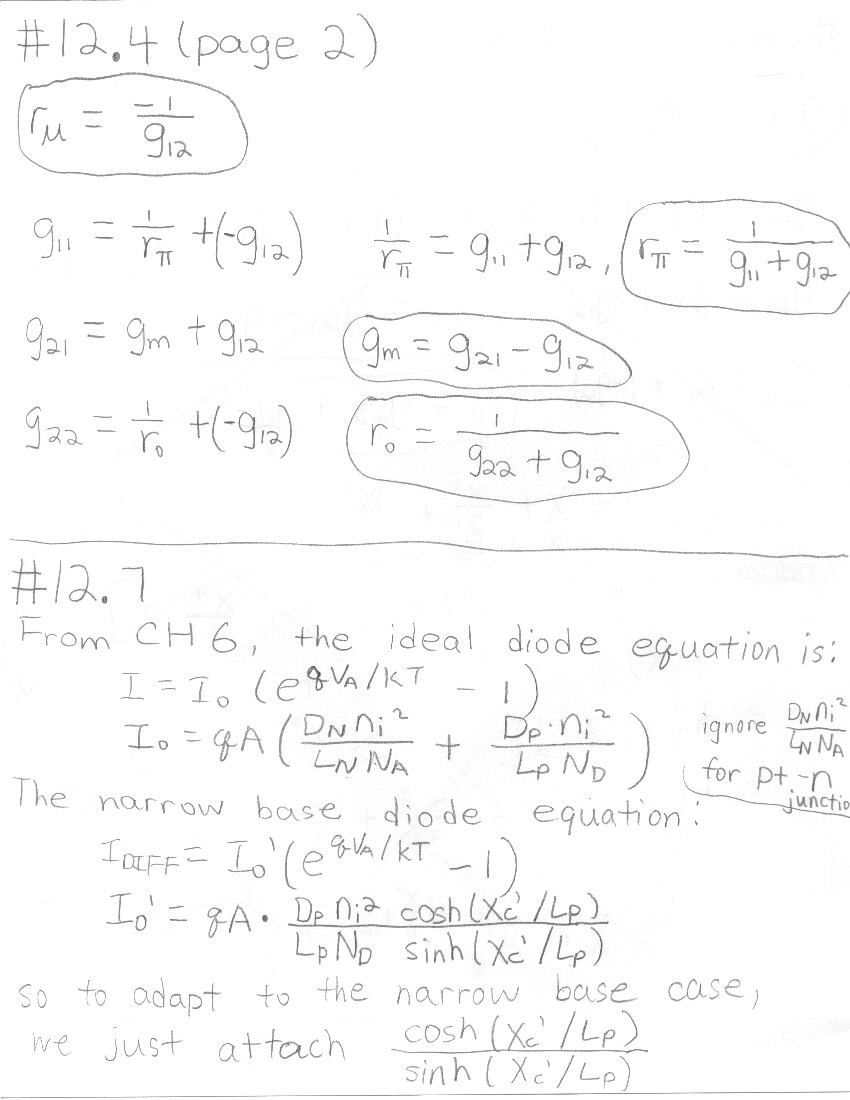 #12.4 (page 2)
rμ = -1/g₁₂
g₁₁ = 1/rπ + (-g₁₂)   1/rπ = g₁₁ + g₁₂,   rπ = 1/(g₁₁ + g₁₂)
g₂₁ = gm + g₁₂   gm = g₂₁ - g₁₂
g₂₂ = 1/r₀ + (-g₁₂)   r₀ = 1/(g₂₂ + g₁₂)
#12.7
From CH 6, the ideal diode equation is:
I = I₀ (e^(qVA/kT) - 1)
I₀ = qA (DN ni²/(LN NA) + DP·ni²/(LP ND))   ignore DN ni²/(LN NA)
for pt.-n
junctio
The narrow base diode equation:
IDIFF = I₀' (e^(qVA/kT) - 1)
I₀' = qA · DP ni² cosh(Xc'/LP) / LP ND sinh(Xc'/LP)
so to adapt to the narrow base case,
we just attach cosh(Xc'/LP) / sinh(Xc'/LP)